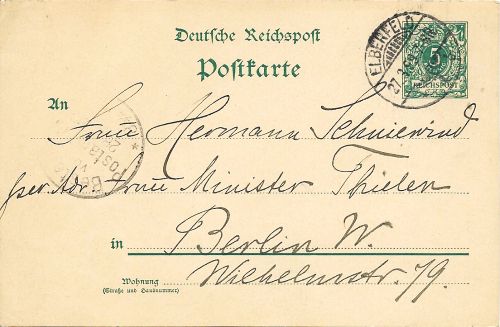 Deutsche Reichspost
Postkarte
ELBERFELD
5
REICHSPOST
An
Frau Hermann Schniewind
per Adr. Frau Minister Thielen
in Berlin W.
Wohnung Wilhelmstr. 79.
(Straße und Hausnummer)